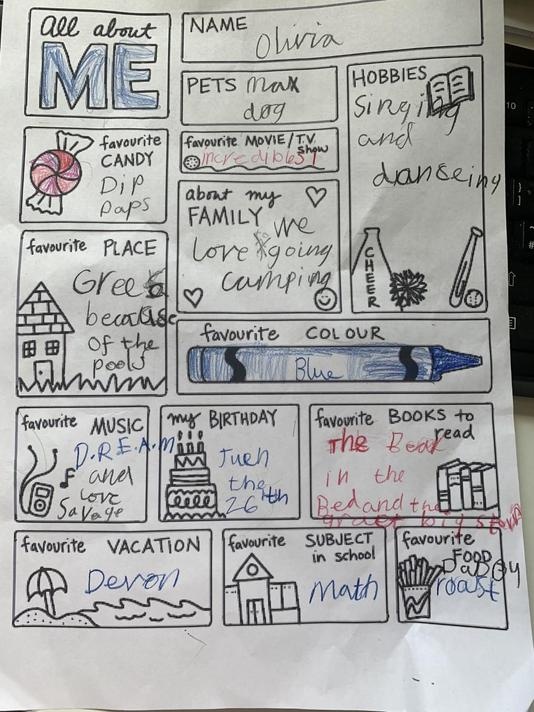 All about
ME
NAME
Olivia
PETS Max
dog
HOBBIES
Singing
and
danceing
CHEER
favourite
CANDY
Dip
Daps
favourite MOVIE/T.V.
show
Incredibles 1
about my
FAMILY we
love going
camping
favourite PLACE
Greec
because
of the
pools
favourite COLOUR
Blue
favourite MUSIC
D.R.E.A.M
and
Love
Savage
my BIRTHDAY
Juen
the
26th
favourite BOOKS to
read
The Bear
in the
Bed and the
graet big
favourite VACATION
Devon
favourite SUBJECT
in school
Math
favourite
FOOD
roast